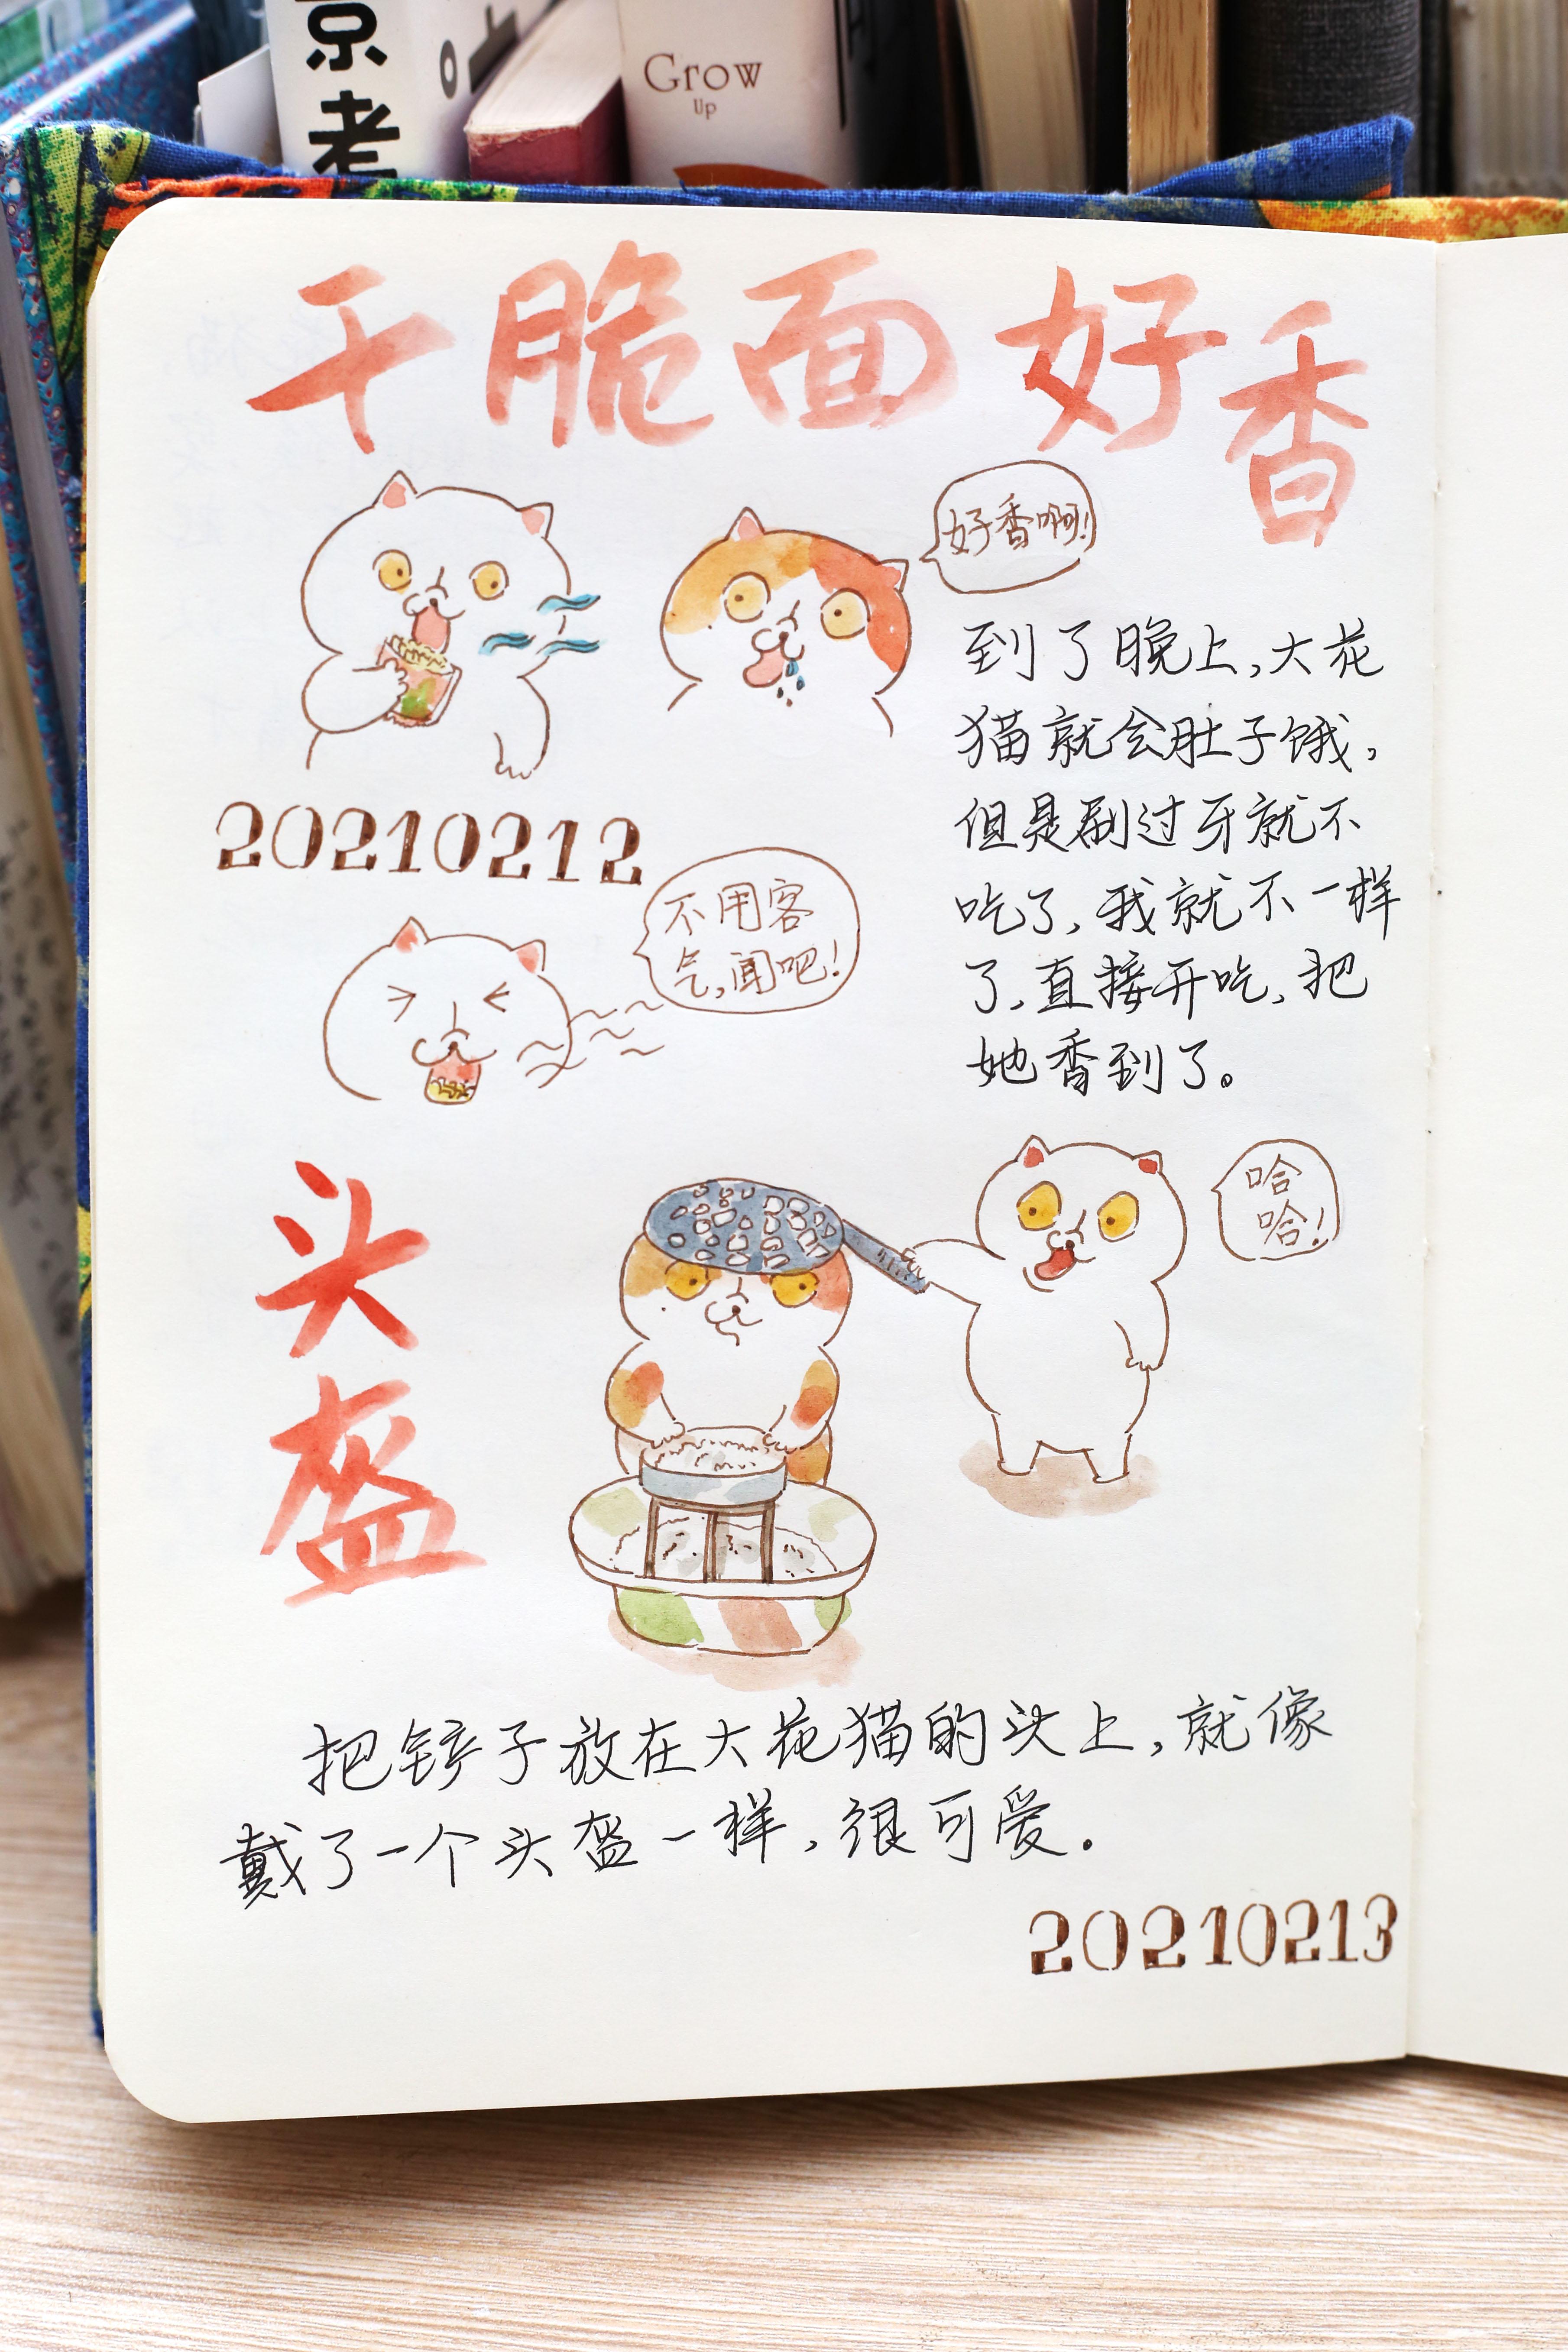 京考
Grow
Up
干脆面好香
好香啊!
到了晚上,大花
猫就会肚子饿,
但是刷过牙就不
吃了,我就不一样
了,直接开吃,把
她香到了。
20210212
不用客
气,闻吧!
头盔
哈
哈!
把铲子放在大花猫的头上,就像
戴了一个头盔一样,很可爱.
20210213